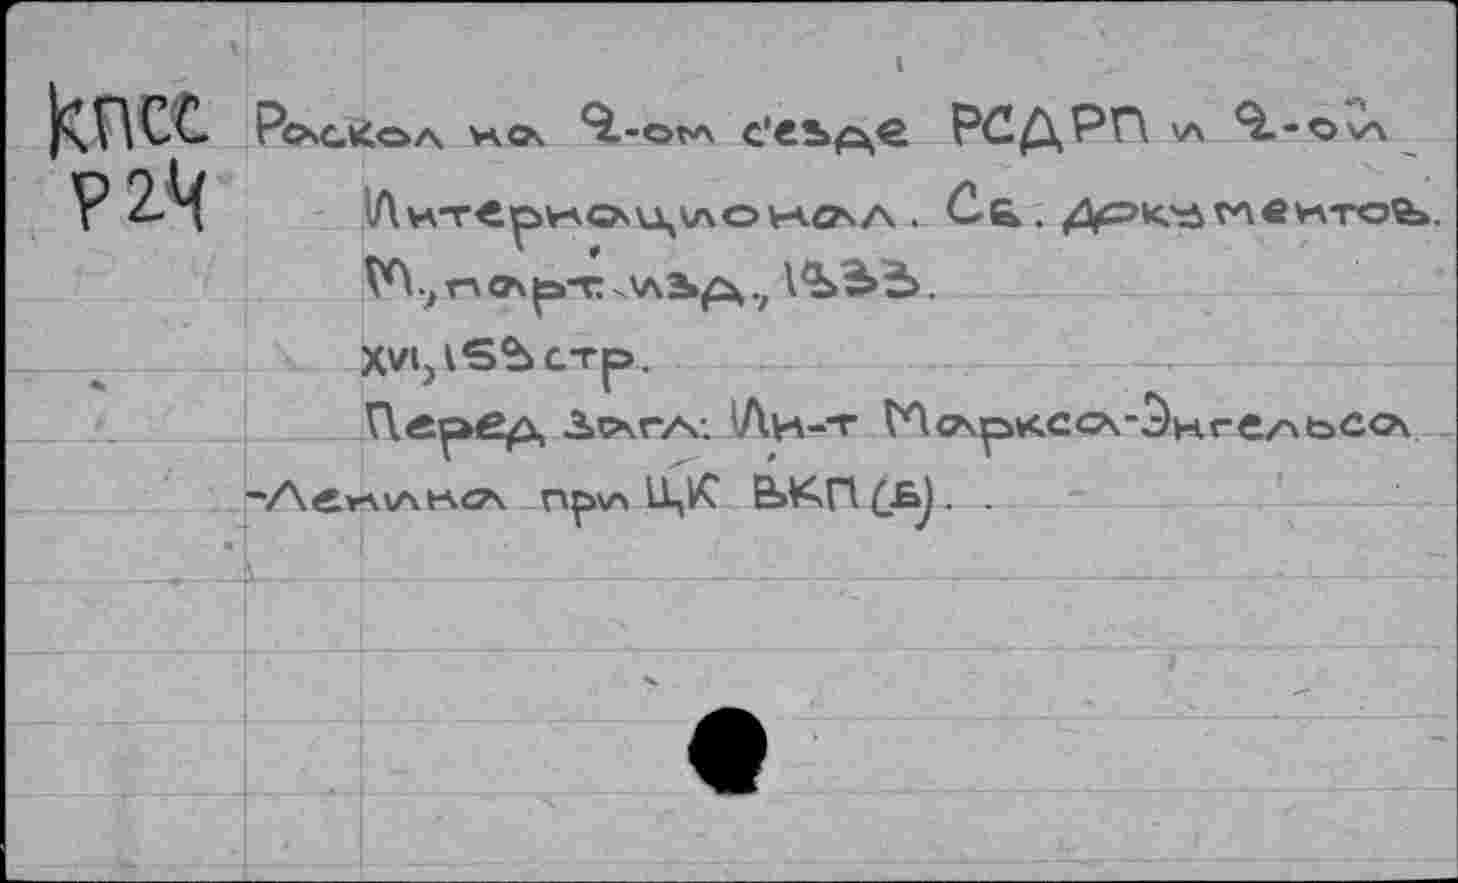 КПСС Раскол на 2-ом с'езде РСДРП и 2-ой
Р24 Интернационал. Сб. документов.
М., парт. изд., 1933.
XVI, 153 стр.
Перед загл: Ин-т Маркса-Энгельса
-Ленина при ЦК ВКП(Б). .